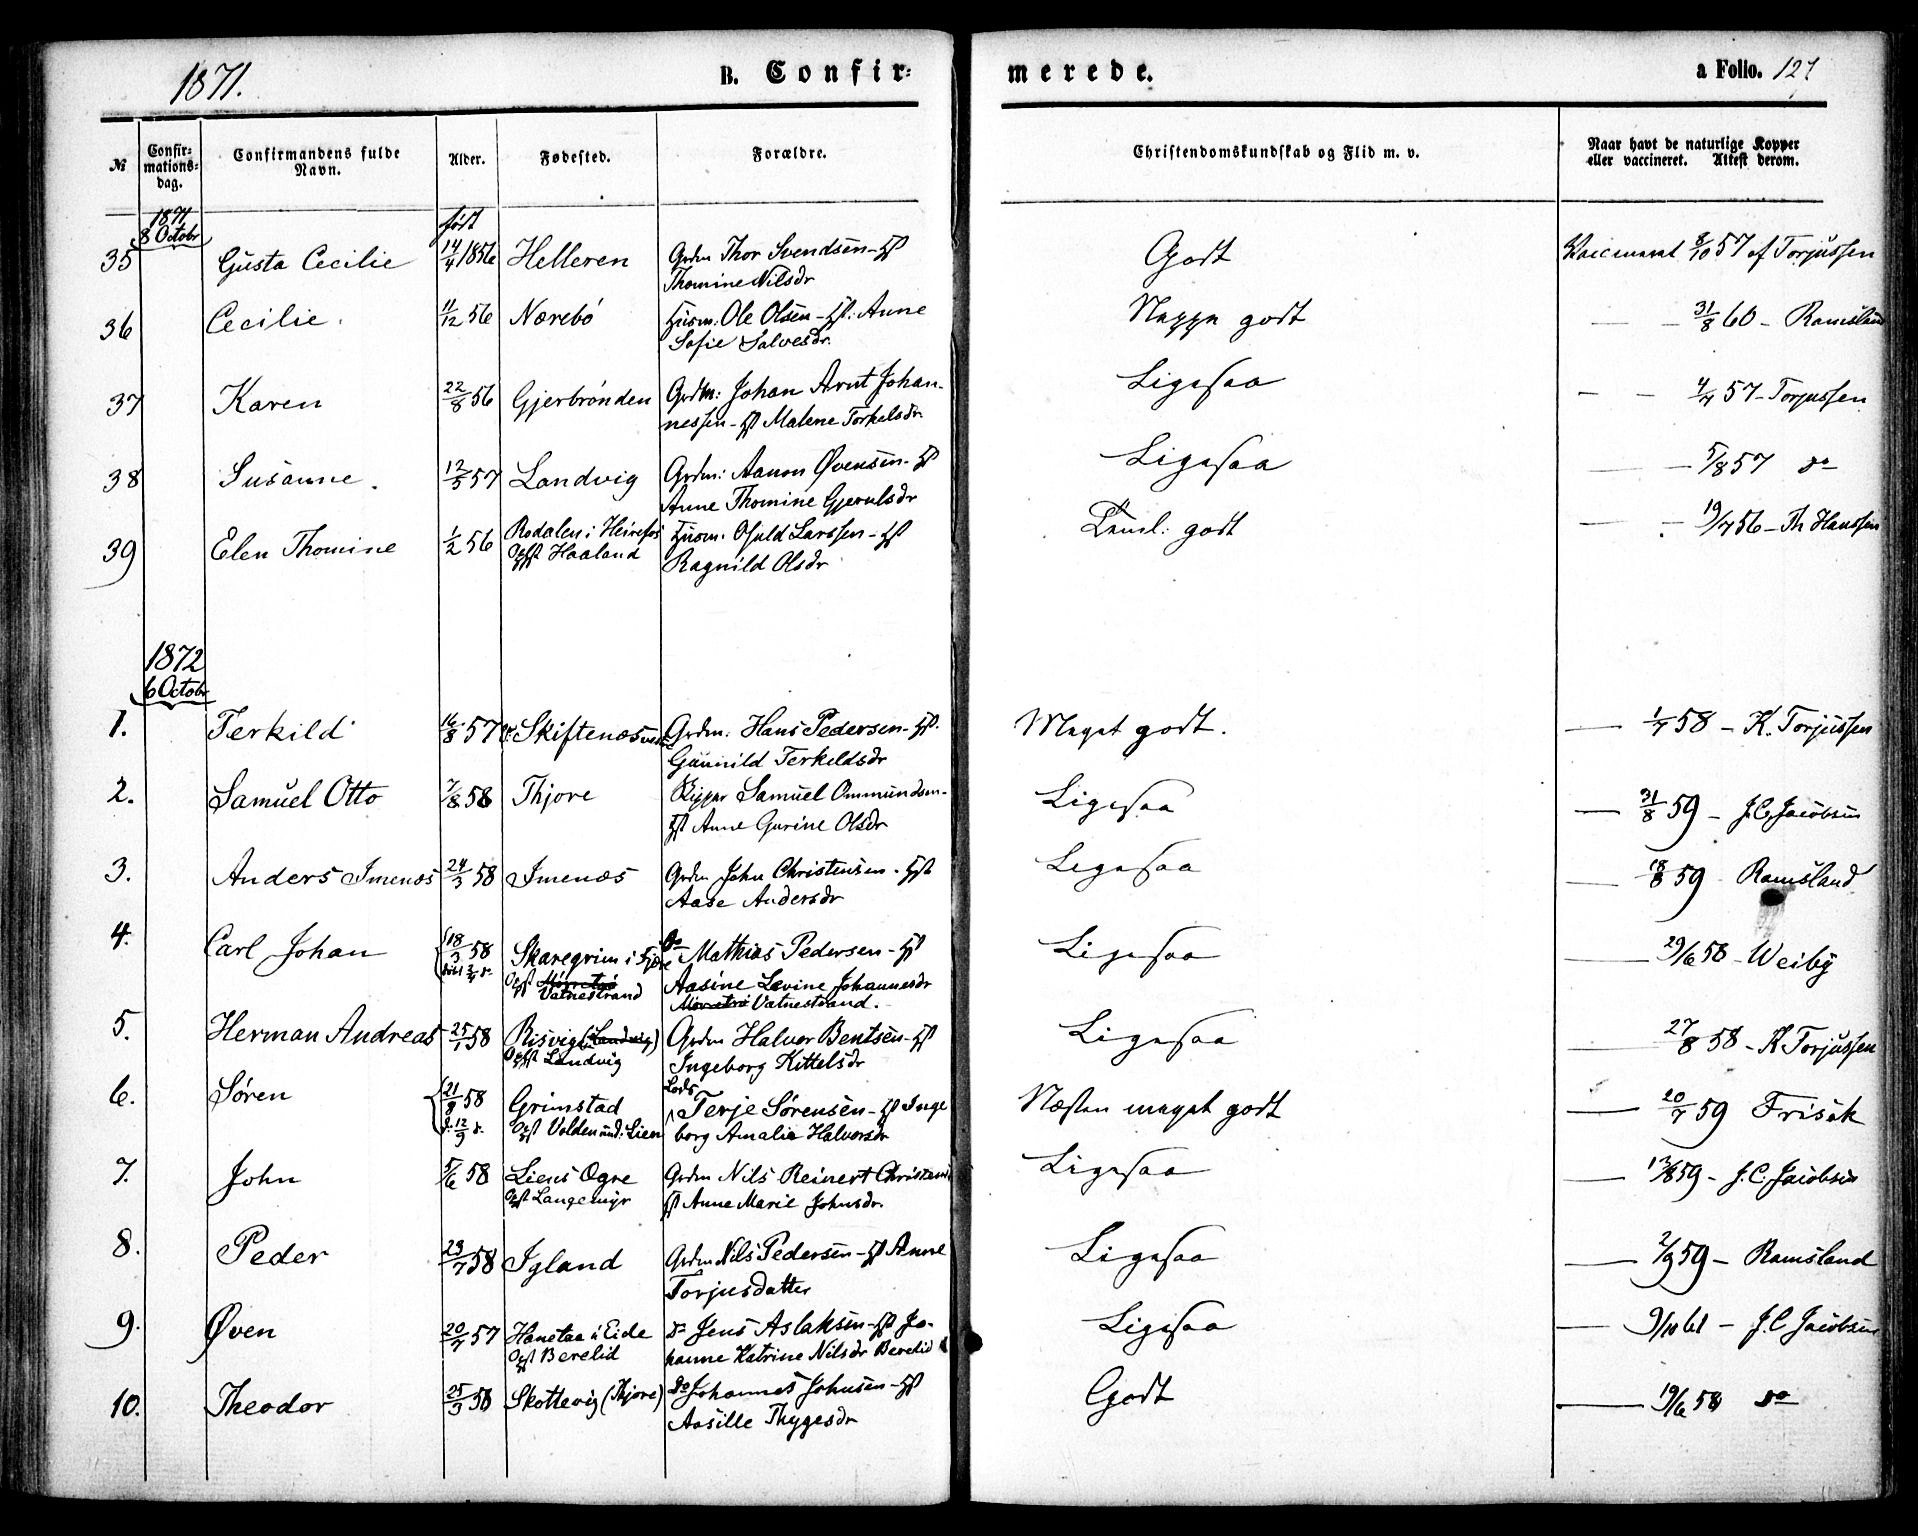 1871.
B. Confir-
merede.
a Folio. 127
№
Confir-
mations-
dag.
Confirmandens fulde
Navn.
Alder.
Fødested.
Forældre.
Christendomskundskab og Flid m. v.
Naar havt de naturlige Kopper
eller vaccineret. Attest derom.
1871
8 Octobr
født
35 Gusta Cecilie 14/4 1856 Helleren Grdm Thor Svendsen - Hst Godt Vaccineret 8/10 57 af Torjussen
Thomine Nilsdr
36 Cecilie. 11/12 56 Nærebö Husm: Ole Olsen - Hst: Anne Neppe godt — - 31/8 60 - Ramsland
Sofie Salvesdr.
37 Karen 22/8 56 Gjerbrönden Grdm: Johan Arnt Johan- Ligesaa - - 4/7 57 - Torjussen
nessen - Hst Malene Torkelsdr
38 Susanne. 12/3 57 Landvig Grdm: Aanon Øvensen - Hst Ligesaa — - 5/8 57 do
Anne Thomine Gjerulsdr
39 Elen Thomine 1/2 56 Rodalen i Heirefos Husm: Osuld Larssen - Hst Teml: godt — - 19/7 56 - Th Hanssen
Opst Haaland Ragnild Olsdr
1872
6 Octobr
1. Terkild 16/8 57 Skiftenæs Grdm: Hans Pedersen - Hst. Meget godt. — 1/7 58 - K. Torjussen
Gunnild Terkeldsdr
2. Samuel Otto 7/8 58 Thjore Skipper Samuel Ommundsen - Ligesaa — 31/8 59 - J. C. Jacobsen
Hst Anne Gurine Olsdr
3. Anders Imenæs 24/3 58 Imenæs Grdm John Christensen - Hst Ligesaa — 18/8 59 Ramsland
Aase Andersdr
4. Carl Johan 18/3 58 Skaregrim i Fjære do Mathias Pedersen - Hst Ligesaa — 29/6 58 - Weiby
Opst Vatnestrand Aasine Levine Johannesdr
Vatnestrand.
5. Herman Andreas 25/1 58 Risvig (i Landvig) Grdm Halvor Bentsen - Hst Ligesaa — 27/8 58 - K Torjussen
Opst Landvig Ingeborg Kittelsdr
6. Søren 21/8 58 Grimstad Lods Terje Sørensen - Hst Inge Næsten meget godt — 20/7 59 Frisak
d. 12/9 s. Opst Volden und: Lien borg Amalie Halvorsdr
7. John 5/6 58 Liens Ogre Grdm Nils Reinert Christens Ligesaa — 13/8 59 - J. C. Jacobsen
Opst Langemyr Hst Anne Marie Johnsdr.
8. Peder 23/7 58 Igland Grdm Nils Pedersen - Hst Anne Ligesaa — 2/9 59 - Ramsland
Torjusdatter
9. Øven 20/7 57 Hanetaa i Eide do Jens Aslaksen - Hst Jo- Ligesaa — 9/10 61 - J. C Jacobsen
Opst Berelid hanne Katrine Nilsdr Berelid
10. Theodor 25/3 58 Skottevig (Thjore) do Johannes Johnsen - Hst Godt — 19/6 58 do
Aasille Thygesdr